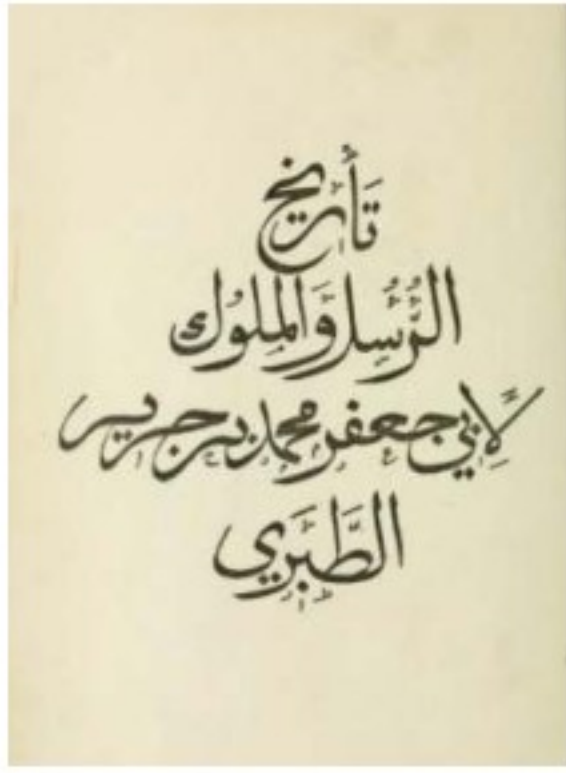 تَأْريخ
الرُّسُل وَالمُلوُك
لِأَبي جَعفر محمد بن جرير
الطَّبَري